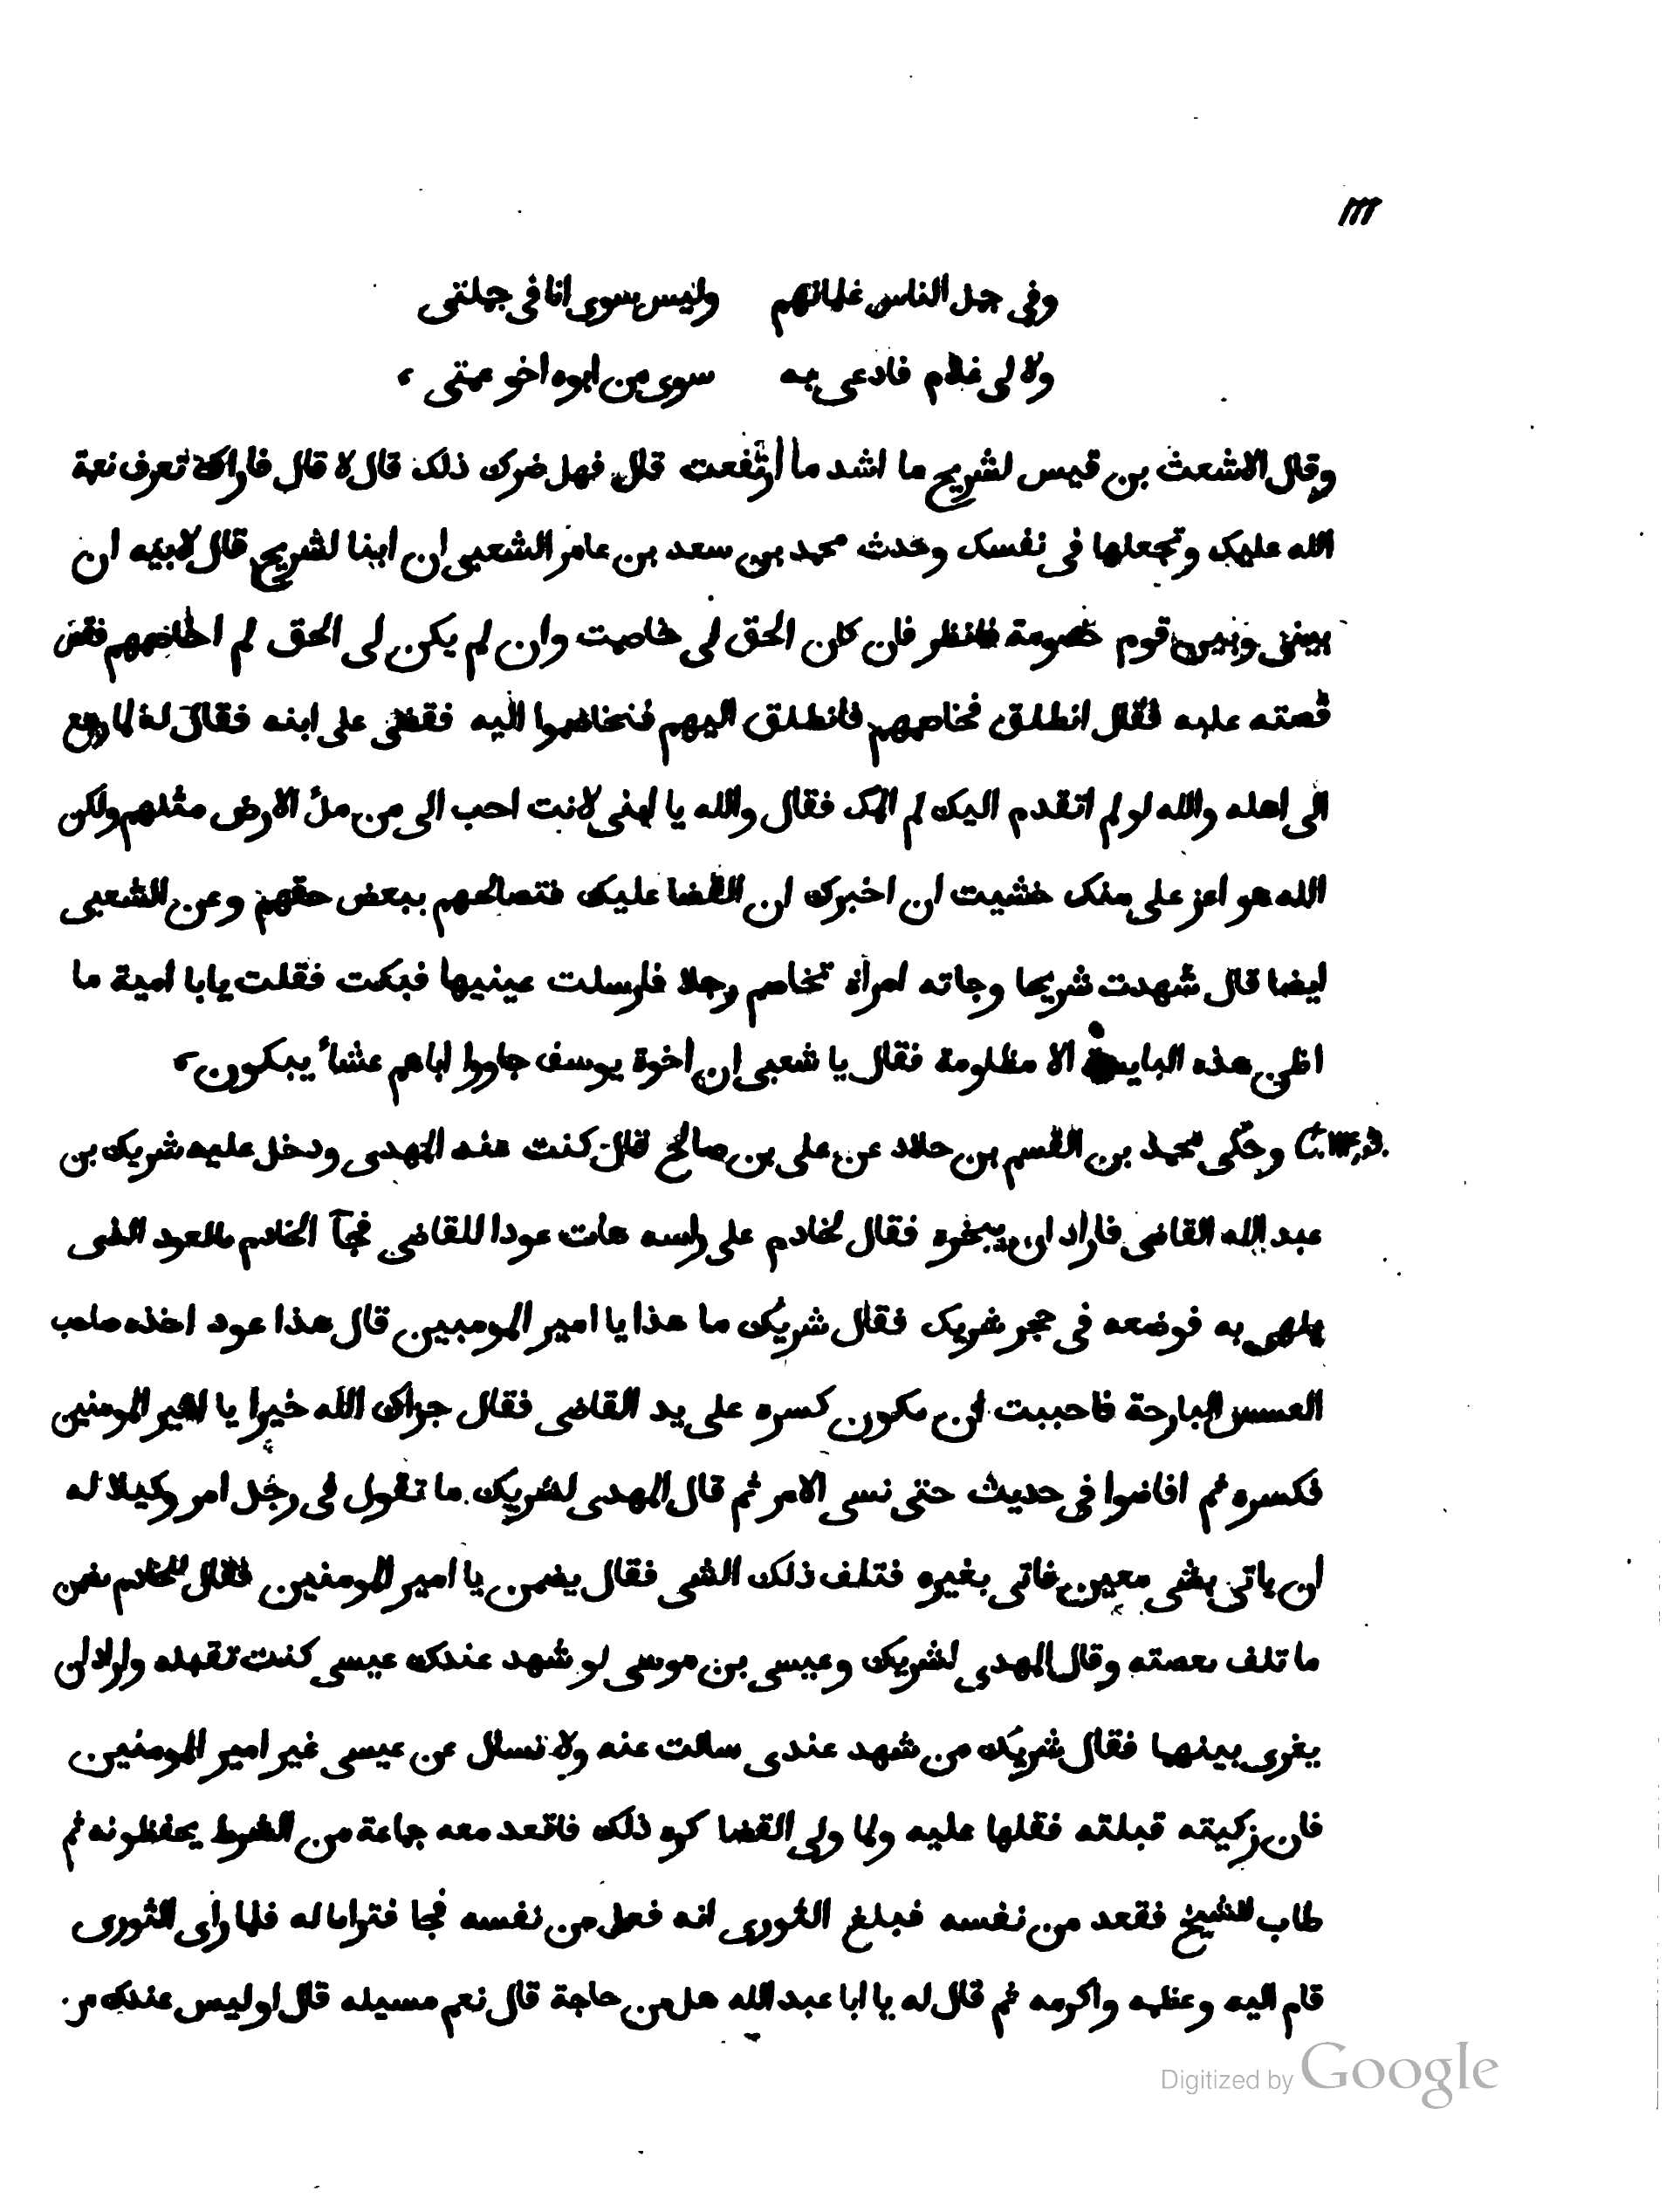 ١١١
وفي جمل الناس غلمانهم وليس سوى انا في جملتى
ولا لى غلام فادعى به سوى من ابوه اخو عمتى ،
وقال الاشعث بن قيس لشريح ما اشد ما ارتفعت قال فهل ضرك ذلك قال لا قال فاراك تعرف نعمة
الله عليك وتجعلها في نفسك وحدث محمد بن سعد بن عامر الشعبى ان ابنا لشريح قال لابيه ان
بينى وبين قوم خصومة فانظر فان كان الحق لى خاصمت وان لم يكن لى الحق لم اخاصمهم فقص
قصته عليه فقال انطلق فخاصمهم فانطلق اليهم فتخاصموا اليه فقضى على ابنه فقال له لما رجع
الى اهله والله لو لم اتقدم اليك لم المك فقال والله يا ابنى لانت احب الى من ملأ الارض مثلهم ولكن
الله هو اعز على منك خشيت ان اخبرك ان القضا عليك فتصالحهم ببعض حقهم وعن الشعبى
ايضا قال شهدت شريحا وجاته امرأة تخاصم رجلا فارسلت عينيها فبكت فقلت يابا امية ما
اظن هذه البايسة الا مظلومة فقال يا شعبى ان اخوة يوسف جاووا اباهم عشاء يبكون ،
وحكى محمد بن القسم بن خلاد عن على بن صالح قال كنت عند المهدى ودخل عليه شريك بن
عبد الله القاضى فاراد ان يبخره فقال لخادم على راسه هات عودا للقاضى فجآ الخادم بالعود الذى
يلهى به فوضعه في حجر شريك فقال شريك ما هذا يا امير المومبين قال هذا عود اخذه صاحب
العسس البارحة فاحببت ان يكون كسره على يد القاضى فقال جزاك الله خيرا يا امير المومنين
فكسره ثم افاضوا في حديث حتى نسى الامر ثم قال المهدى لشريك ما تقول في رجل امر وكيلا له
ان ياتى بشى معين فاتى بغيره فتلف ذلك الشى فقال يضمن يا امير المومنين فقال للخادم ضمن
ما تلف بعصته وقال المهدى لشريك وعيسى بن موسى لو شهد عندك عيسى كنت تقبله واراد ان
يغرى بينهما فقال شريك من شهد عندى سالت عنه ولا نسال عن عيسى غير امير المومنين
فان زكيته قبلته فقلبها عليه ولما ولى القضا كره ذلك فاقعد معه جماعة من الشرط يحفظونه ثم
طاب للشيخ فقعد من نفسه فبلغ الثورى انه فعل من نفسه فجا فتراماله فلما راى الثورى
قام اليه وعظمه واكرمه ثم قال له يا ابا عبد الله هل من حاجة قال نعم مسيله قال اوليس عندك من
Digitized by Google